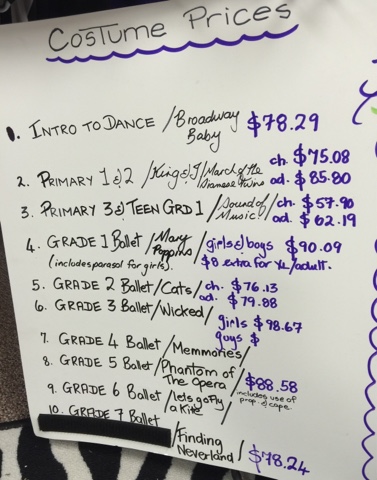 Costume Prices
1. INTRO TO DANCE / Broadway Baby $78.29
2. PRIMARY 1 & 2 / King & I / March of the Siamese Twins ch. $75.08 ad. $85.80
3. PRIMARY 3 & TEEN GRD 1 / Sound of Music / ch. $57.90 ad. $62.19
4. GRADE 1 Ballet / Mary Poppins / girls & boys $90.09
(includes parasol for girls). $8 extra for XL/adult.
5. GRADE 2 Ballet / Cats / ch. $76.13 ad. $79.88
6. GRADE 3 Ballet / Wicked / girls $98.67 guys $
7. GRADE 4 Ballet / Memmories /
8. GRADE 5 Ballet / Phantom of The Opera / $88.58 includes use of prop & cape
9. GRADE 6 Ballet / lets go Fly a Kite
10. GRADE 7 Ballet / Finding Neverland / $78.24